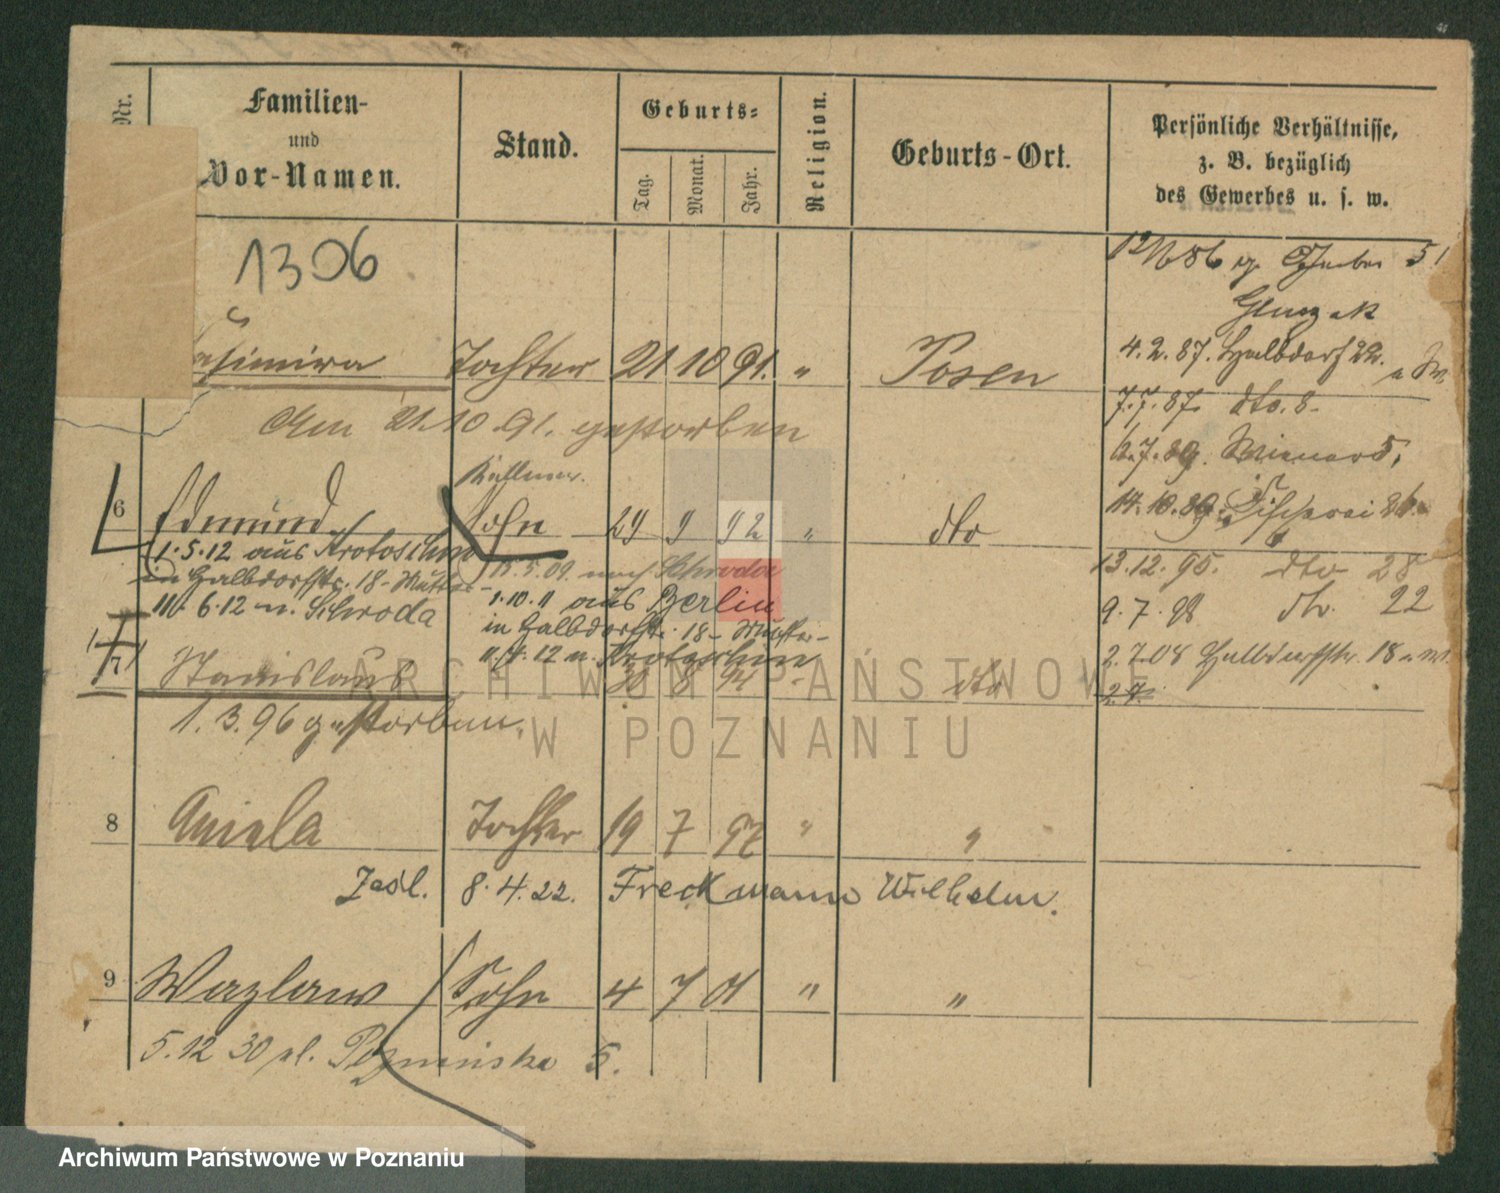 Nr.
Familien-
und
Vor-Namen.
Stand.
Geburts-
Tag.
Monat.
Jahr.
Religion.
Geburts-Ort.
Persönliche Verhältnisse,
z. B. bezüglich
des Gewerbes u. s. w.
1306
86
51
asimira Tochter 21 10 91. " Posen
4.2.87. Halbdorf 22.
Am 21.10.91. gestorben
7.7.87. dto. 8.
7.89. 5.
Kellner.
6 Edmund Sohn 29 9 92 " dto
14.10.89. Fischerei
1.5.12 aus Krotoschin
in Halbdorfstr. 18 - Mutter -
11.6.12 n. Schroda
15.5.09. nach Schroda
1.10.11 aus Berlin
in Halbdorfstr. 18 - Mutter -
4.12 n. Krotoschin
13.12.95. dto 28
9.7.98 dto. 22
2.7.08 Halbdorfstr. 18
2.7.
7 Stanislaus 8 94 " dto
1.3.96 gestorben.
ARCHIWUM PAŃSTWOWE
W POZNANIU
8 Aniela Tochter 19 7 97 " "
Zasl. 8.4.22. Freckmann Wilhelm.
9 Wazlaw Sohn 4 7 01 " "
5.12 30 pl. Poznańska 5.
Archiwum Państwowe w Poznaniu